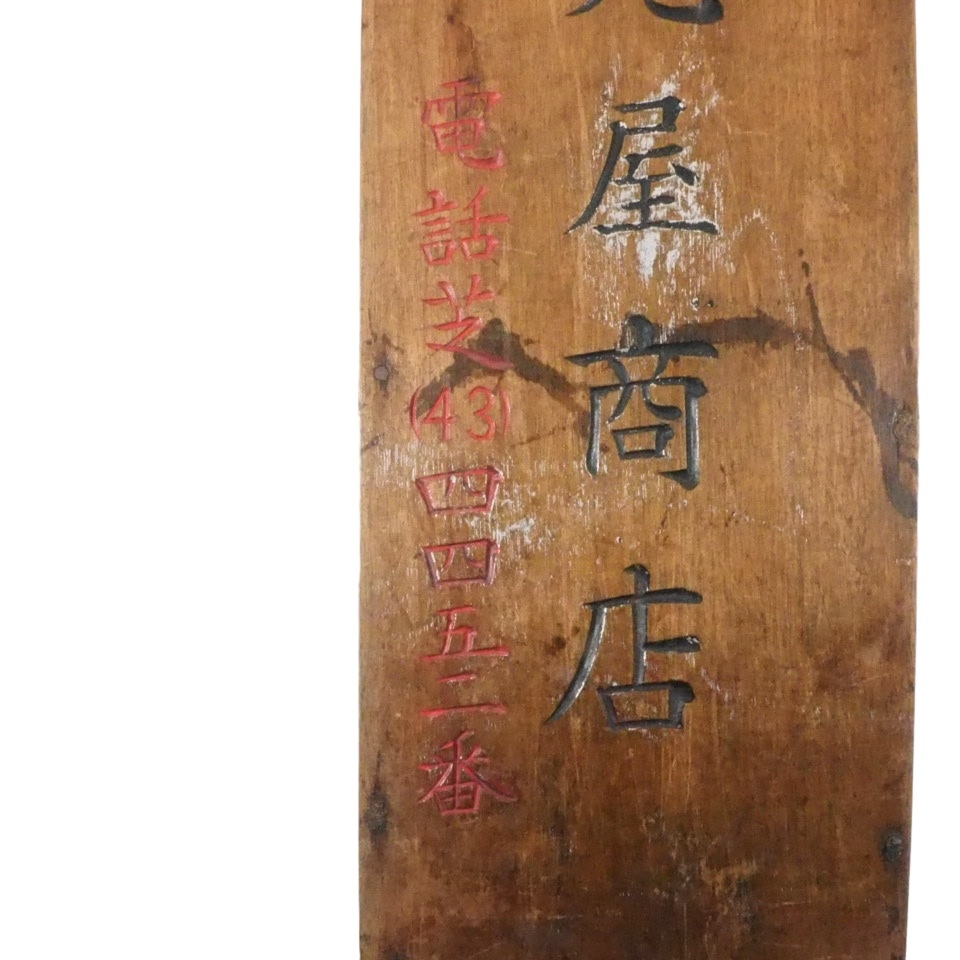 屋商店
電話芝(43)四四五二番